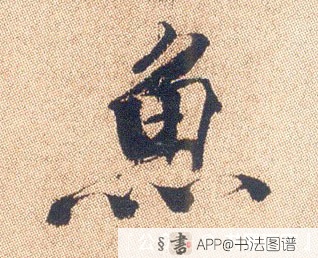 魚
§書 APP@书法图谱